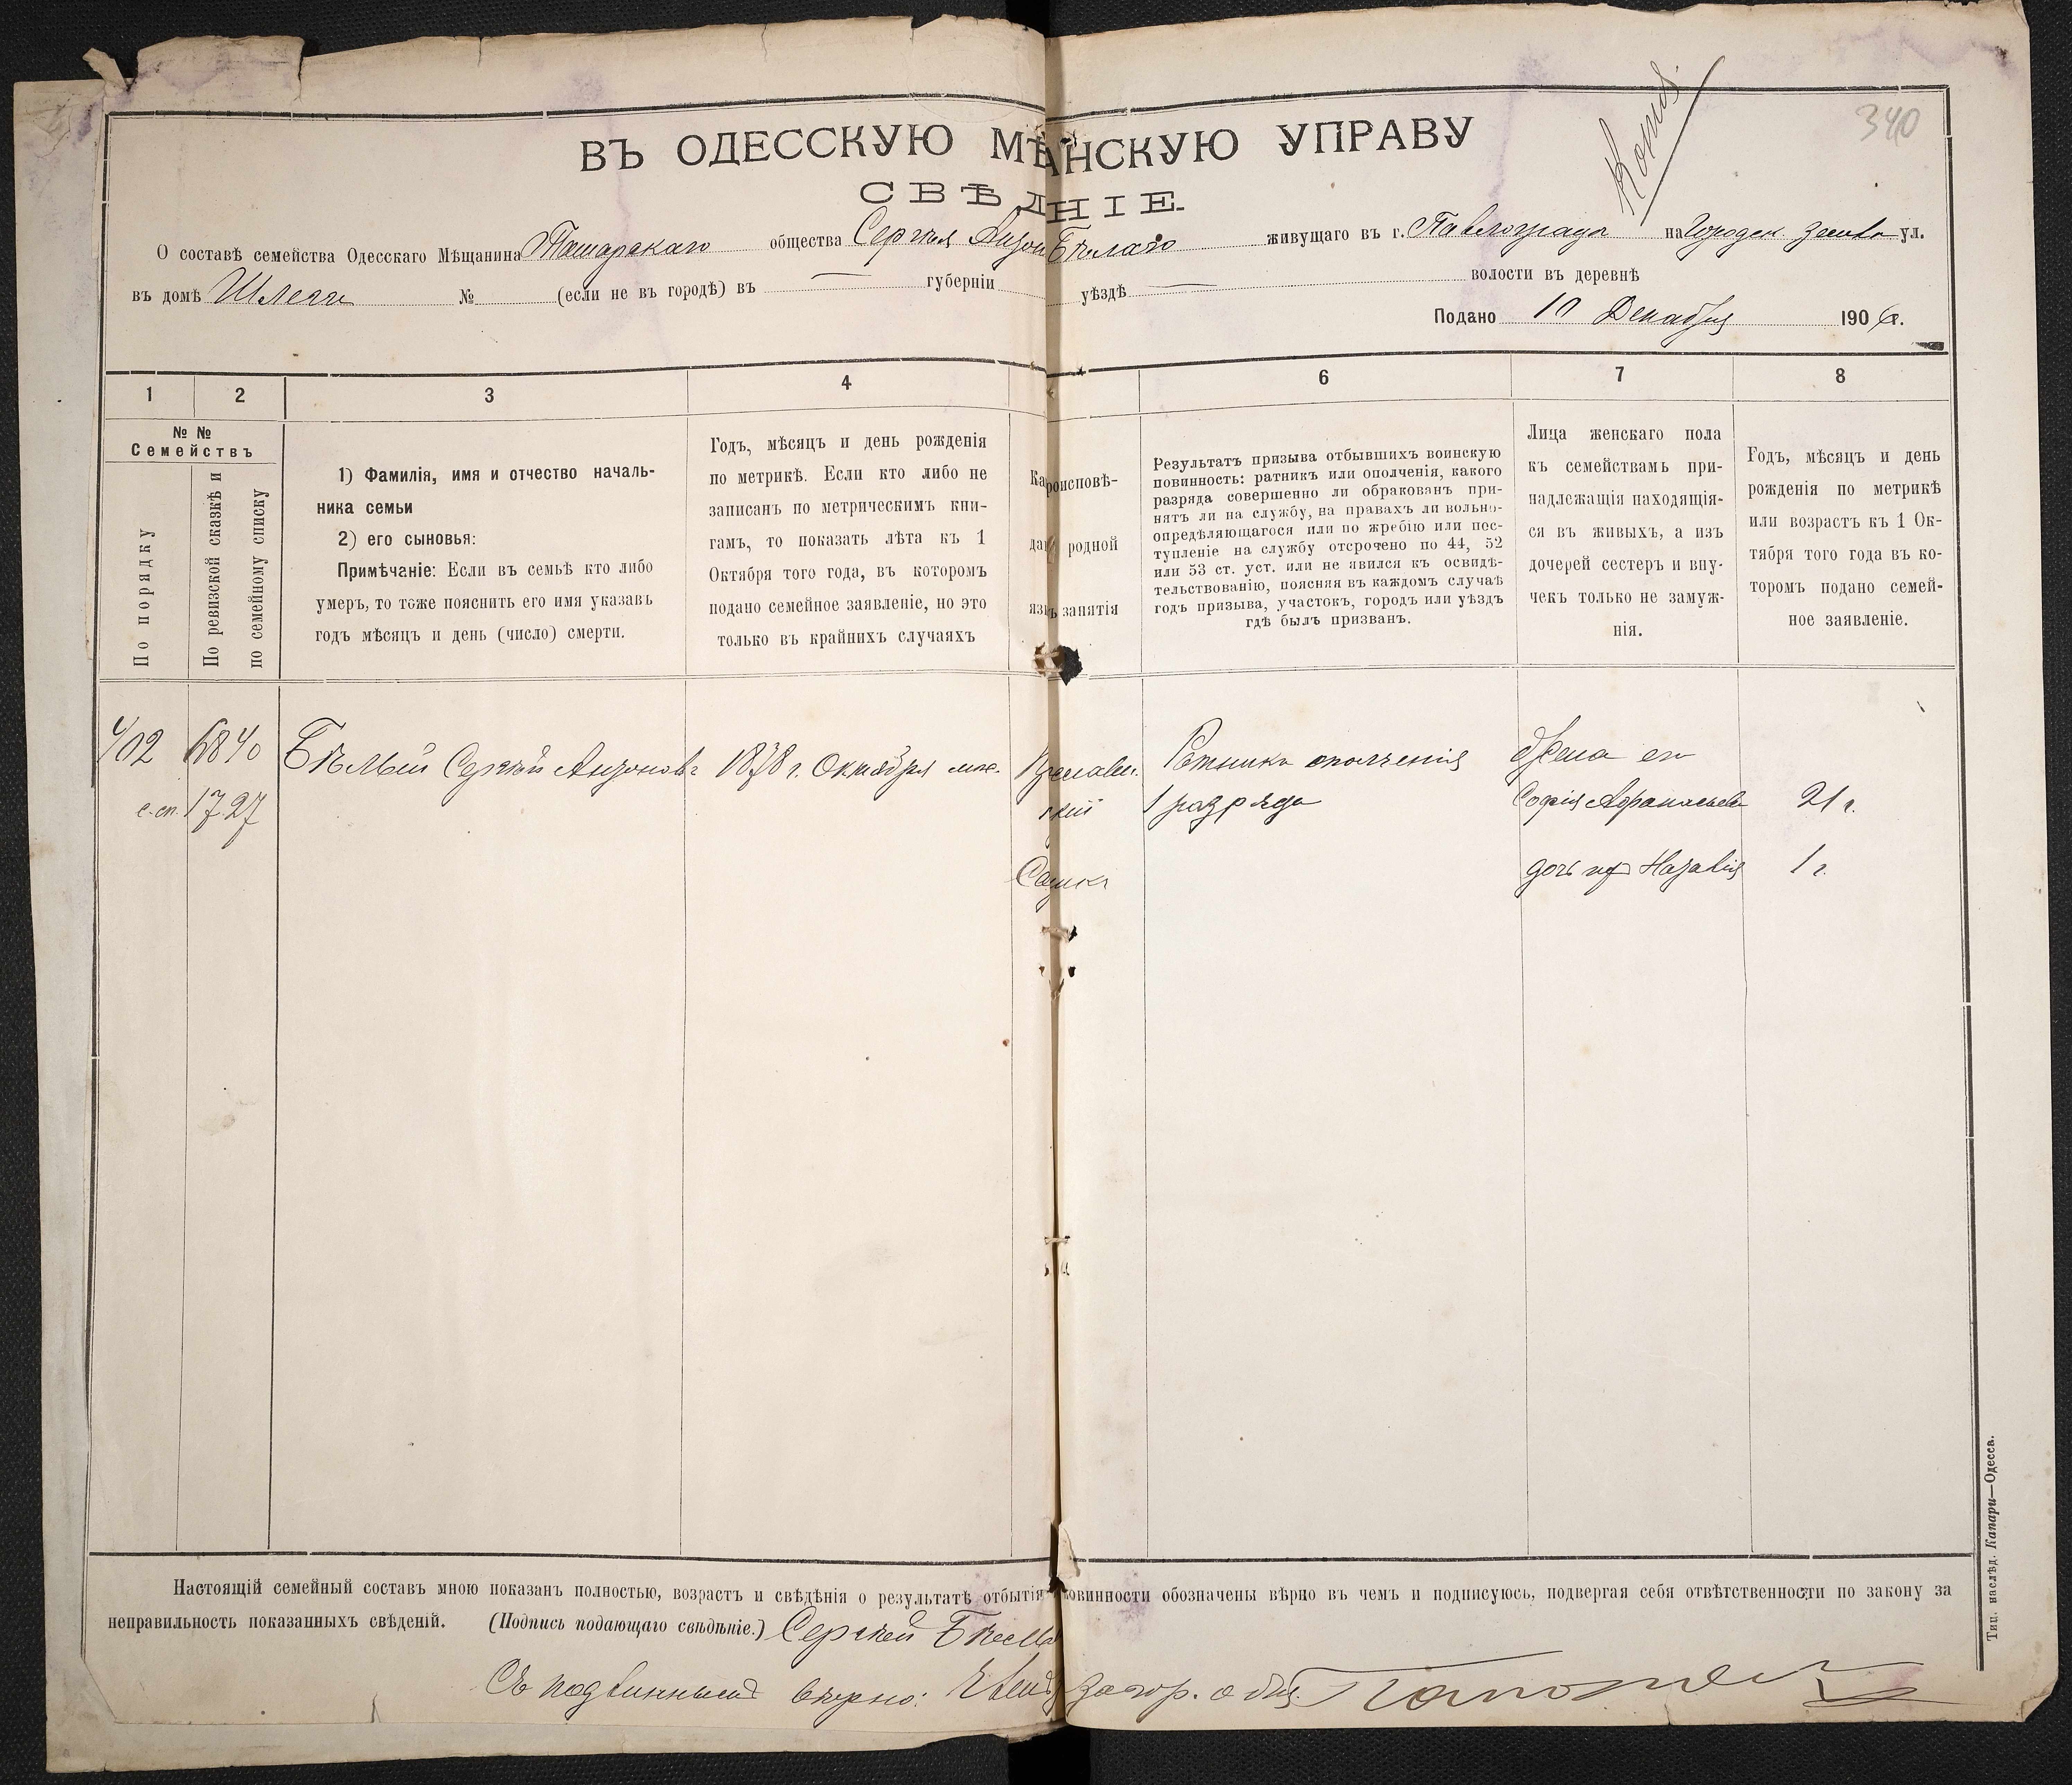 Копія
340
ВЪ ОДЕССКУЮ МѢ АНСКУЮ УПРАВУ
СВѢД НІЕ.
О составѣ семейства Одесскаго Мѣщанина общества Сергѣя Антон Бѣлаго живущаго въ г. Павлограда на Городск. ул.
въ домѣ № (если не въ городѣ) въ — губерніи уѣздѣ — волости въ деревнѣ
Подано 10 Декабря 1906 г.
1 2 3 4 6 7 8
№ №
Семействъ
По порядку
По ревизской сказкѣ и
по семейному списку
1) Фамилія, имя и отчество началь-
ника семьи
2) его сыновья:
Примѣчаніе: Если въ семьѣ кто либо
умеръ, то тоже пояснить его имя указавъ
годъ мѣсяцъ и день (число) смерти.
Годъ, мѣсяцъ и день рожденія
по метрикѣ. Если кто либо не
записанъ по метрическимъ кни-
гамъ, то показать лѣта къ 1
Октября того года, въ которомъ
подано семейное заявленіе, но это
только въ крайнихъ случаяхъ
Ка роисповѣ-
да родной
язы ъ занятія
Результатъ призыва отбывшихъ воинскую
повинность: ратникъ или ополченія, какого
разряда совершенно ли обракованъ при-
нятъ ли на службу, на правахъ ли вольно-
опредѣляющагося или по жребію или пос-
тупленіе на службу отсрочено по 44, 52
или 53 ст. уст. или не явился къ освидѣ-
тельствованію, поясняя въ каждомъ случаѣ
годъ призыва, участокъ, городъ или уѣздъ
гдѣ былъ призванъ.
Лица женскаго пола
къ семействамъ при-
надлежащія находящія-
ся въ живыхъ, а изъ
дочерей сестеръ и вну-
чекъ только не замуж-
нія.
Годъ, мѣсяцъ и день
рожденія по метрикѣ
или возрастъ къ 1 Ок-
тября того года въ ко-
торомъ подано семей-
ное заявленіе.
402 6840 Бѣлый Сергѣй Антоновъ 1878 г. Октября Православ. Ратникъ ополченія Жена его
с. сп. 1727 1 разряда Софія Афанасьева 21 г.
дочь их Наталія 1 г.
Настоящій семейный составъ мною показанъ полностью, возрастъ и свѣдѣнія о результатѣ отбытія повинности обозначены вѣрно въ чемъ и подписуюсь, подвергая себя отвѣтственности по закону за
неправильность показанныхъ свѣденій. (Подпись подающаго свѣдѣніе.) Сергѣй Бѣлы
Съ подлиннымъ вѣрно:
Тип. наслѣд. Капари—Одесса.